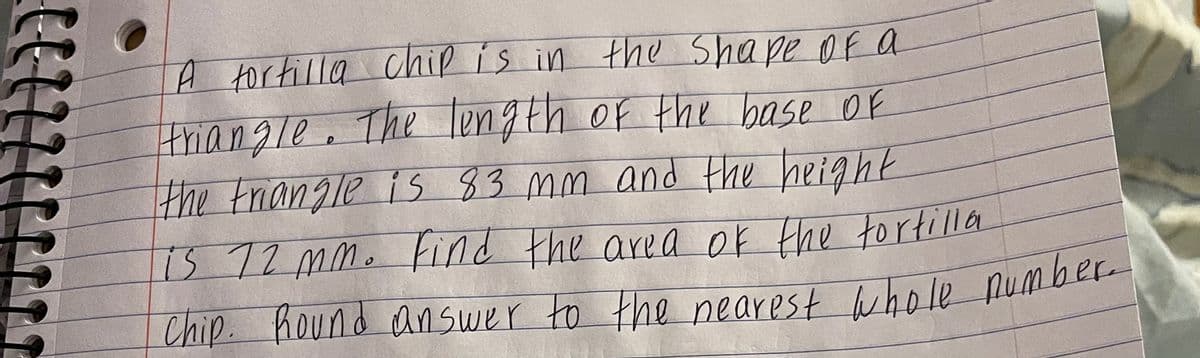 A tortilla chip is in the shape of a
triangle. The length of the base of
the triangle is 83 mm and the height
is 72 mm. Find the area of the tortilla
chip. Round answer to the nearest whole number.